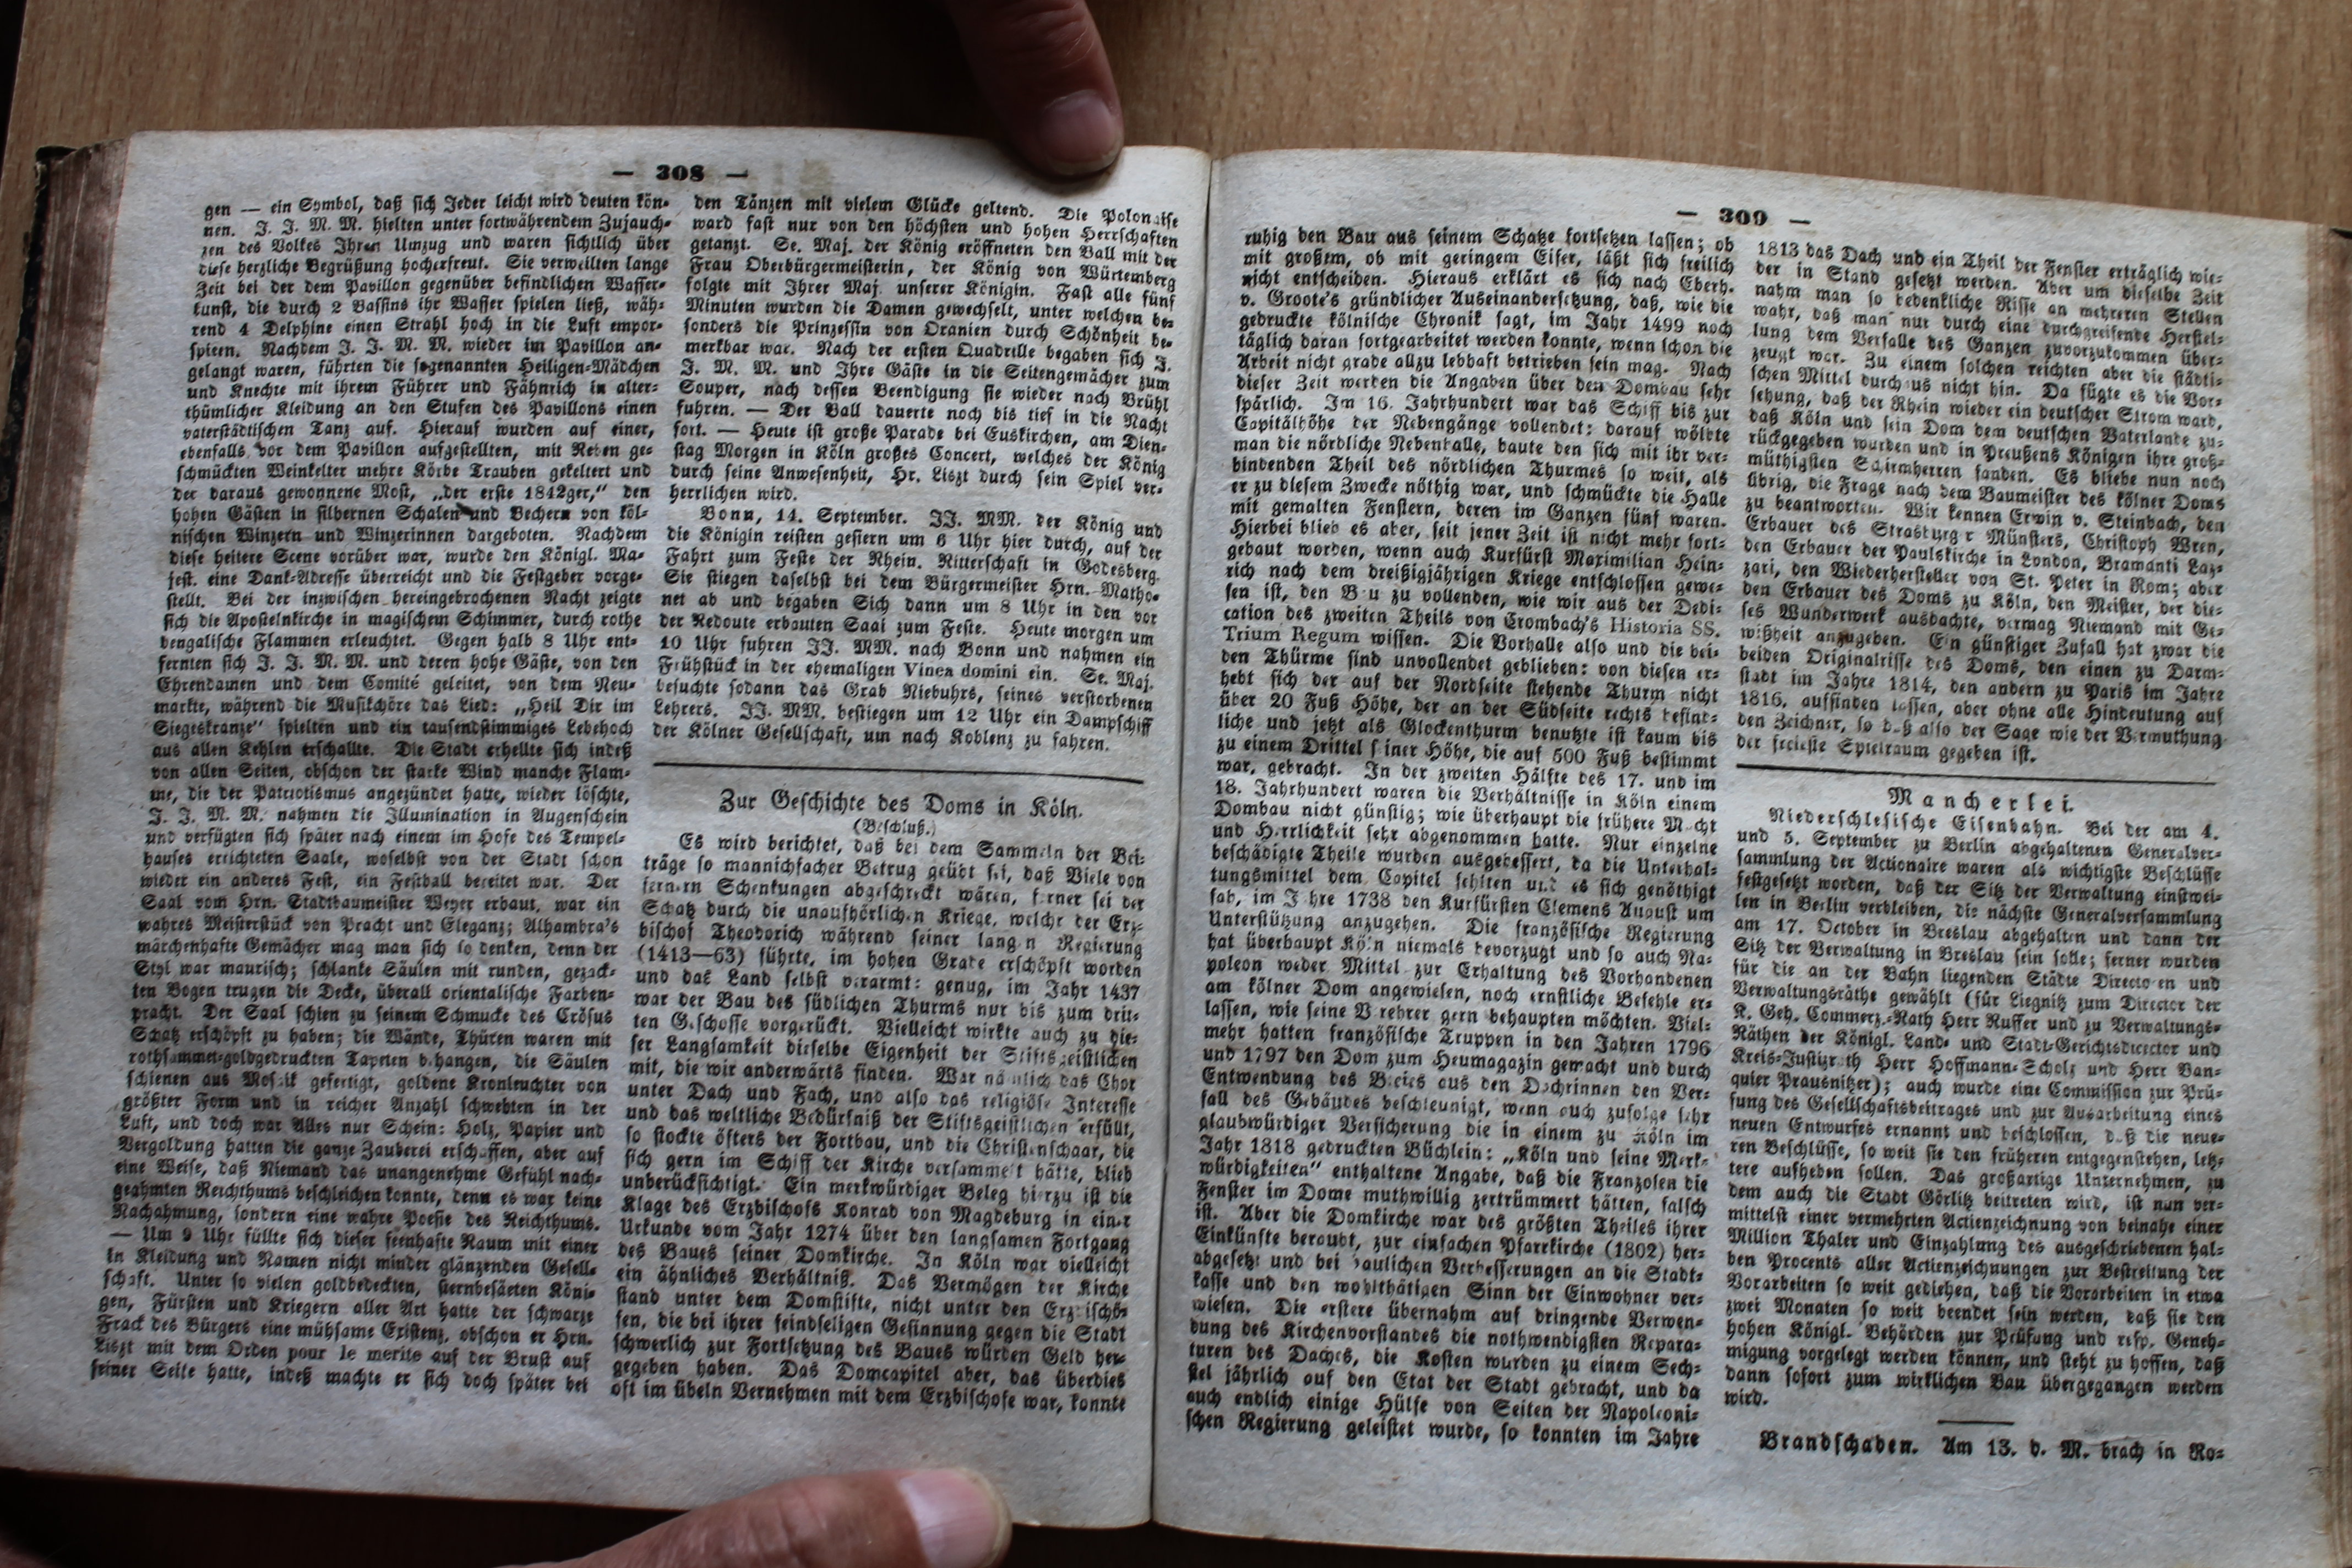 — 308 —
gen — ein Symbol, daß sich Jeder leicht wird deuten kön-
nen. J. J. M. M. hielten unter fortwährendem Zujauch-
zen des Volkes Ihren Umzug und waren sichtlich über
diese herzliche Begrüßung hocherfreut. Sie verweilten lange
Zeit bei der dem Pavillon gegenüber befindlichen Wasser-
kunst, die durch 2 Bassins ihr Wasser spielen ließ, wäh-
rend 4 Delphine einen Strahl hoch in die Luft empor-
spieen. Nachdem J. J. M. M. wieder im Pavillon an-
gelangt waren, führten die sogenannten Heiligen-Mädchen
und Knechte mit ihrem Führer und Fähnrich in alter-
thümlicher Kleidung an den Stufen des Pavillons einen
vaterstädtischen Tanz auf. Hierauf wurden auf einer,
ebenfalls vor dem Pavillon aufgestellten, mit Reben ge-
schmückten Weinkelter mehre Körbe Trauben gekeltert und
der daraus gewonnene Most, „der erste 1842ger,“ den
hohen Gästen in silbernen Schalen und Bechern von köl-
nischen Winzern und Winzerinnen dargeboten. Nachdem
diese heitere Scene vorüber war, wurde den Königl. Ma-
jest. eine Dank-Adresse überreicht und die Festgeber vorge-
stellt. Bei der inzwischen hereingebrochenen Nacht zeigte
sich die Apostelnkirche in magischem Schimmer, durch rothe
bengalische Flammen erleuchtet. Gegen halb 8 Uhr ent-
fernten sich J. J. M. M. und deren hohe Gäste, von den
Ehrendamen und dem Comité geleitet, von dem Neu-
markte, während die Musikchöre das Lied: „Heil Dir im
Siegeskranze“ spielten und ein tausendstimmiges Lebehoch
aus allen Kehlen erschallte. Die Stadt erhellte sich indeß
von allen Seiten, obschon der starke Wind manche Flam-
me, die der Patriotismus angezündet hatte, wieder löschte,
J. J. M. M. nahmen die Illumination in Augenschein
und verfügten sich später nach einem im Hofe des Tempel-
hauses errichteten Saale, woselbst von der Stadt schon
wieder ein anderes Fest, ein Festball bereitet war. Der
Saal vom Hrn. Stadtbaumeister Weyer erbaut, war ein
wahres Meisterstück von Pracht und Eleganz; Alhambra's
märchenhafte Gemächer mag man sich so denken, denn der
Styl war maurisch; schlanke Säulen mit runden, gezack-
ten Bogen trugen die Decke, überall orientalische Farben-
pracht. Der Saal schien zu seinem Schmucke des Crösus
Schatz erschöpft zu haben; die Wände, Thüren waren mit
rothsammet-goldgedruckten Tapeten behangen, die Säulen
schienen aus Mosaik gefertigt, goldene Kronleuchter von
größter Form und in reicher Anzahl schwebten in der
Luft, und doch war Alles nur Schein: Holz, Papier und
Vergoldung hatten die ganze Zauberei erschaffen, aber auf
eine Weise, daß Niemand das unangenehme Gefühl nach-
geahmten Reichthums beschleichen konnte, denn es war keine
Nachahmung, sondern eine wahre Poesie des Reichthums.
— Um 9 Uhr füllte sich dieser feenhafte Raum mit einer
in Kleidung und Namen nicht minder glänzenden Gesell-
schaft. Unter so vielen goldbedeckten, sternbesäeten Köni-
gen, Fürsten und Kriegern aller Art hatte der schwarze
Frack des Bürgers eine mühsame Existenz, obschon er Hrn.
Liszt mit dem Orden pour le merite auf der Brust auf
seiner Seite hatte, indeß machte er sich doch später bei
den Tänzen mit vielem Glücke geltend. Die Polonaise
ward fast nur von den höchsten und hohen Herrschaften
getanzt. Se. Maj. der König eröffneten den Ball mit der
Frau Oberbürgermeisterin, der König von Würtemberg
folgte mit Ihrer Maj. unserer Königin. Fast alle fünf
Minuten wurden die Damen gewechselt, unter welchen be-
sonders die Prinzessin von Oranien durch Schönheit be-
merkbar war. Nach der ersten Quadrille begaben sich J.
J. M. M. und Ihre Gäste in die Seitengemächer zum
Souper, nach dessen Beendigung sie wieder nach Brühl
fuhren. — Der Ball dauerte noch bis tief in die Nacht
fort. — Heute ist große Parade bei Euskirchen, am Dien-
stag Morgen in Köln großes Concert, welches der König
durch seine Anwesenheit, Hr. Liszt durch sein Spiel ver-
herrlichen wird.
Bonn, 14. September. JJ. MM. der König und
die Königin reisten gestern um 6 Uhr hier durch, auf der
Fahrt zum Feste der Rhein. Ritterschaft in Godesberg.
Sie stiegen daselbst bei dem Bürgermeister Hrn. Matho-
net ab und begaben Sich dann um 8 Uhr in den vor
der Redoute erbauten Saal zum Feste. Heute morgen um
10 Uhr fuhren JJ. MM. nach Bonn und nahmen ein
Frühstück in der ehemaligen Vinea domini ein. Se. Maj.
besuchte sodann das Grab Niebuhrs, seines verstorbenen
Lehrers. JJ. MM. bestiegen um 12 Uhr ein Dampfschiff
der Kölner Gesellschaft, um nach Koblenz zu fahren.
Zur Geschichte des Doms in Köln.
(Beschluß.)
Es wird berichtet, daß bei dem Sammeln der Bei-
träge so mannichfacher Betrug geübt sei, daß Viele von
fernern Schenkungen abgeschreckt wären, ferner sei der
Schatz durch die unaufhörlichen Kriege, welche der Erz-
bischof Theodorich während seiner langen Regierung
(1413—63) führte, im hohen Grade erschöpft worden
und das Land selbst verarmt: genug, im Jahr 1437
war der Bau des südlichen Thurms nur bis zum drit-
ten Geschosse vorgerückt. Vielleicht wirkte auch zu die-
ser Langsamkeit dieselbe Eigenheit der Stiftsgeistlichen
mit, die wir anderwärts finden. War nämlich das Chor
unter Dach und Fach, und also das religiöse Interesse
und das weltliche Bedürfniß der Stiftsgeistlichen erfüllt,
so stockte öfters der Fortbau, und die Christenschaar, die
sich gern im Schiff der Kirche versammelt hätte, blieb
unberücksichtigt. Ein merkwürdiger Beleg hierzu ist die
Klage des Erzbischofs Konrad von Magdeburg in einer
Urkunde vom Jahr 1274 über den langsamen Fortgang
des Baues seiner Domkirche. In Köln war vielleicht
ein ähnliches Verhältniß. Das Vermögen der Kirche
stand unter dem Domstifte, nicht unter den Erzbischö-
fen, die bei ihrer feindseligen Gesinnung gegen die Stadt
schwerlich zur Fortsetzung des Baues würden Geld her-
gegeben haben. Das Domcapitel aber, das überdies
oft im übeln Vernehmen mit dem Erzbischofe war, konnte
— 309 —
ruhig den Bau aus seinem Schatze fortsetzen lassen; ob
mit großem, ob mit geringem Eifer, läßt sich freilich
nicht entscheiden. Hieraus erklärt es sich nach Eberh.
v. Groote's gründlicher Auseinandersetzung, daß, wie die
gedruckte kölnische Chronik sagt, im Jahr 1499 noch
täglich daran fortgearbeitet werden konnte, wenn schon die
Arbeit nicht grade allzu lebhaft betrieben sein mag. Nach
dieser Zeit werden die Angaben über den Dombau sehr
spärlich. Im 16. Jahrhundert war das Schiff bis zur
Capitälhöhe der Nebengänge vollendet: darauf wölbte
man die nördliche Nebenhalle, baute den sich mit ihr ver-
bindenden Theil des nördlichen Thurmes so weit, als
er zu diesem Zwecke nöthig war, und schmückte die Halle
mit gemalten Fenstern, deren im Ganzen fünf waren.
Hierbei blieb es aber, seit jener Zeit ist nicht mehr fort-
gebaut worden, wenn auch Kurfürst Maximilian Hein-
rich nach dem dreißigjährigen Kriege entschlossen gewe-
sen ist, den Bau zu vollenden, wie wir aus der Dedi-
cation des zweiten Theils von Crombach's Historia SS.
Trium Regum wissen. Die Vorhalle also und die bei-
den Thürme sind unvollendet geblieben: von diesen er-
hebt sich der auf der Nordseite stehende Thurm nicht
über 20 Fuß Höhe, der an der Südseite rechts befind-
liche und jetzt als Glockenthurm benutzte ist kaum bis
zu einem Drittel seiner Höhe, die auf 500 Fuß bestimmt
war, gebracht. In der zweiten Hälfte des 17. und im
18. Jahrhundert waren die Verhältnisse in Köln einem
Dombau nicht günstig; wie überhaupt die frühere Macht
und Herrlichkeit sehr abgenommen hatte. Nur einzelne
beschädigte Theile wurden ausgebessert, da die Unterhal-
tungsmittel dem Capitel fehlten und es sich genöthigt
sah, im Jahre 1738 den Kurfürsten Clemens August um
Unterstützung anzugehen. Die französische Regierung
hat überhaupt Köln niemals bevorzugt und so auch Na-
poleon weder Mittel zur Erhaltung des Vorhandenen
am kölner Dom angewiesen, noch ernstliche Befehle er-
lassen, wie seine Verehrer gern behaupten möchten. Viel-
mehr hatten französische Truppen in den Jahren 1796
und 1797 den Dom zum Heumagazin gemacht und durch
Entwendung des Bleies aus den Dachrinnen den Ver-
fall des Gebäudes beschleunigt, wenn auch zufolge sehr
glaubwürdiger Versicherung die in einem zu Köln im
Jahr 1818 gedruckten Büchlein: „Köln und seine Merk-
würdigkeiten“ enthaltene Angabe, daß die Franzosen die
Fenster im Dome muthwillig zertrümmert hätten, falsch
ist. Aber die Domkirche war des größten Theiles ihrer
Einkünfte beraubt, zur einfachen Pfarrkirche (1802) her-
abgesetzt und bei baulichen Verbesserungen an die Stadt-
kasse und den wohlthätigen Sinn der Einwohner ver-
wiesen. Die erstere übernahm auf dringende Verwen-
dung des Kirchenvorstandes die nothwendigsten Repara-
turen des Daches, die Kosten wurden zu einem Sech-
stel jährlich auf den Etat der Stadt gebracht, und da
auch endlich einige Hülfe von Seiten der Napoleoni-
schen Regierung geleistet wurde, so konnten im Jahre
1813 das Dach und ein Theil der Fenster erträglich wie-
der in Stand gesetzt werden. Aber um dieselbe Zeit
nahm man so bedenkliche Risse an mehreren Stellen
wahr, daß man nur durch eine durchgreifende Herstel-
lung dem Verfalle des Ganzen zuvorzukommen über-
zeugt war. Zu einem solchen reichten aber die städti-
schen Mittel durchaus nicht hin. Da fügte es die Vor-
sehung, daß der Rhein wieder ein deutscher Strom ward,
daß Köln und sein Dom dem deutschen Vaterlande zu-
rückgegeben wurden und in Preußens Königen ihre groß-
müthigsten Schirmherren fanden. Es bliebe nun noch
übrig, die Frage nach dem Baumeister des kölner Doms
zu beantworten. Wir kennen Erwin v. Steinbach, den
Erbauer des Strasburger Münsters, Christoph Wren,
den Erbauer der Paulskirche in London, Bramanti Laz-
zari, den Wiederhersteller von St. Peter in Rom; aber
den Erbauer des Doms zu Köln, den Meister, der die-
ses Wunderwerk ausdachte, vermag Niemand mit Ge-
wißheit anzugeben. Ein günstiger Zufall hat zwar die
beiden Originalrisse des Doms, den einen zu Darm-
stadt im Jahre 1814, den andern zu Paris im Jahre
1816, auffinden lassen, aber ohne alle Hindeutung auf
den Zeichner, so daß also der Sage wie der Vermuthung
der freieste Spielraum gegeben ist.
Mancherlei.
Niederschlesische Eisenbahn. Bei der am 4.
und 5. September zu Berlin abgehaltenen Generalver-
sammlung der Actionaire waren als wichtigste Beschlüsse
festgesetzt worden, daß der Sitz der Verwaltung einstwei-
len in Berlin verbleiben, die nächste Generalversammlung
am 17. October in Breslau abgehalten und dann der
Sitz der Verwaltung in Breslau sein solle; ferner wurden
für die an der Bahn liegenden Städte Directoren und
Verwaltungsräthe gewählt (für Liegnitz zum Director der
K. Geh. Commerz.-Rath Herr Ruffer und zu Verwaltungs-
Räthen der Königl. Land- und Stadt-Gerichtsdirector und
Kreis-Justizrath Herr Hoffmann-Scholz und Herr Ban-
quier Prausnitzer); auch wurde eine Commission zur Prü-
fung des Gesellschaftsbeitrages und zur Ausarbeitung eines
neuen Entwurfes ernannt und beschlossen, daß die neue-
ren Beschlüsse, so weit sie den früheren entgegenstehen, letz-
tere aufheben sollen. Das großartige Unternehmen, zu
dem auch die Stadt Görlitz beitreten wird, ist nun ver-
mittelst einer vermehrten Actienzeichnung von beinahe einer
Million Thaler und Einzahlung des ausgeschriebenen hal-
ben Procents aller Actienzeichnungen zur Bestreitung der
Vorarbeiten so weit gediehen, daß die Vorarbeiten in etwa
zwei Monaten so weit beendet sein werden, daß sie den
hohen Königl. Behörden zur Prüfung und resp. Geneh-
migung vorgelegt werden können, und steht zu hoffen, daß
dann sofort zum wirklichen Bau übergegangen werden
wird.
Brandschaden. Am 13. d. M. brach in Ro-